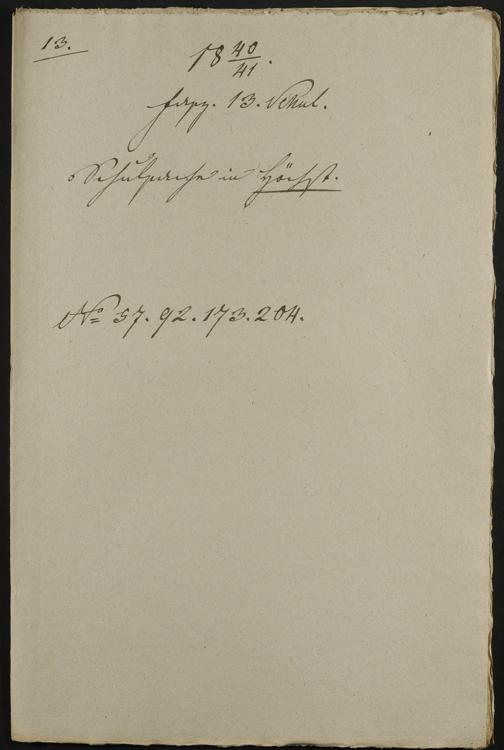 13.
18 40/41.
Fasz. 13. Schul.
Schulsache in Höchst.
No 57. 92. 173. 204.